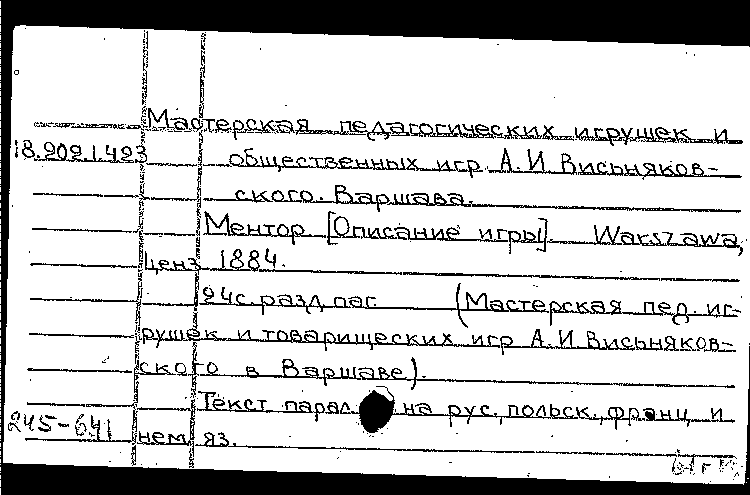 Мастерская педагогических игрушек и
18.202.1.423 общественных игр А.И. Висьняков-
ского. Варшава.
Ментор [Описание игры]. Warszawa,
ценз 1884.
24с. разд. паг. (Мастерская пед. иг-
рушек и товарищеских игр А.И. Висьняков-
ского в Варшаве).
Текст парал. на рус., польск., франц и
245-641 нем яз.